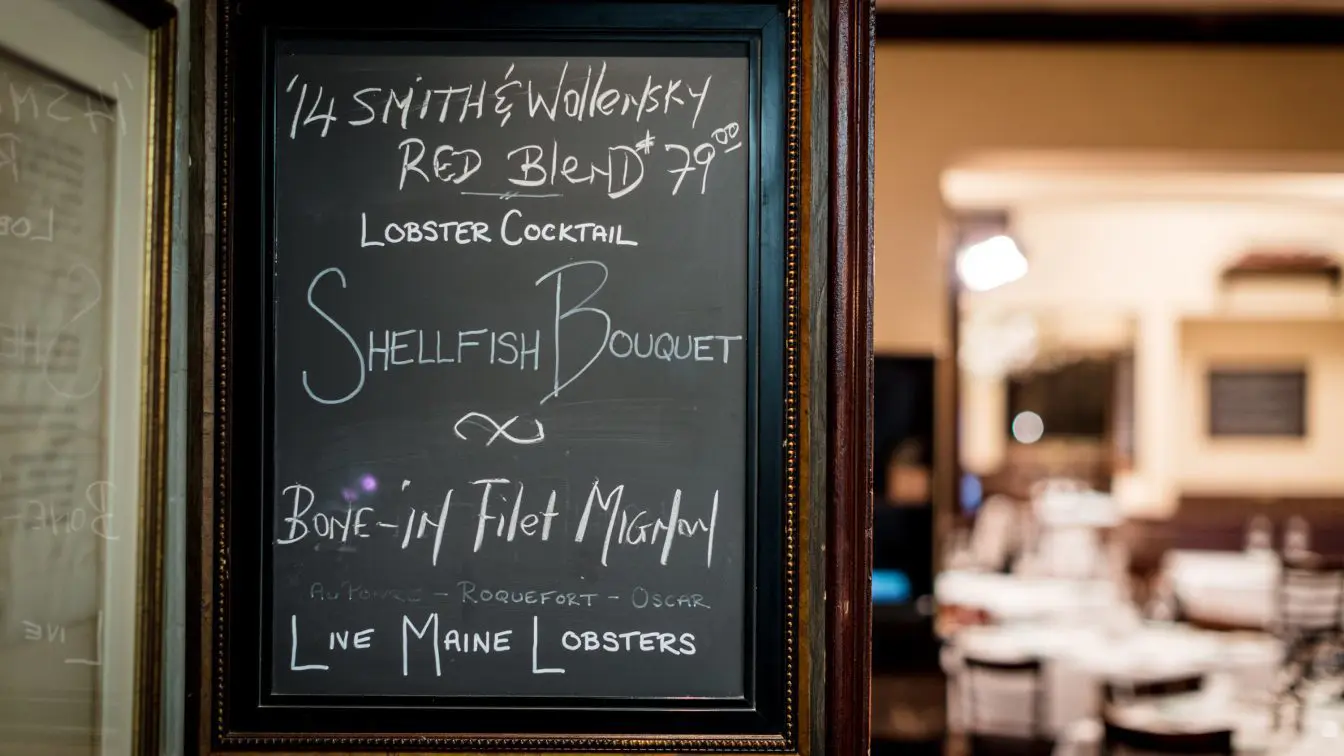 '14 SMITH & Wollensky
RED BlenD $79.00
LOBSTER COCKTAIL
SHELLFISH BOUQUET
BONE-IN Filet MIGNON
- ROQUEFORT - OSCAR
LIVE MAINE LOBSTERS